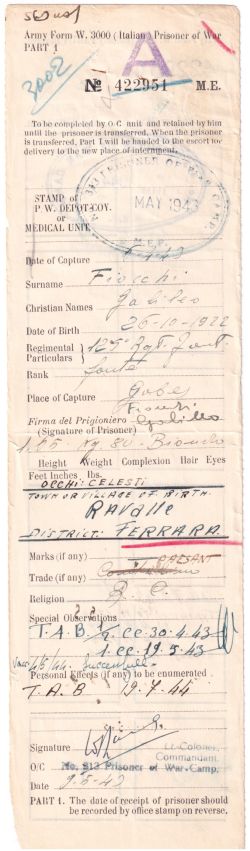 Army Form W. 3000 (Italian) Prisoner of War
PART 1
3002
A
No 422951 M.E.
To be completed by O/C unit and retained by him
until the prisoner is transferred. When the prisoner
is transferred, Part I will be handed to the escort for
delivery to the new place of internment.
STAMP of
P.W. DEPOT-COY.
or
MEDICAL UNIT
PRISONER OF WAR CAMP
MAY 1943
M.E.F.
Date of Capture 4.43
Surname Fiocchi
Christian Names Galileo
Date of Birth 26-10-1922
Regimental 125° Rgt. Fant.
Particulars
Rank fante
Place of Capture Gabes
Firma del Prigioniero Fiocchi Galileo
(Signature of Prisoner)
1.65 Kg 80 - Bianco
Height Weight Complexion Hair Eyes
Feet Inches lbs.
OCCHI: CELESTI
TOWN OR VILLAGE OF BIRTH.
RAVALLE
DISTRICT. FERRARA
Marks (if any)
PAESANT
Trade (if any)
Religion R. C.
Special Observations
T.A.B. 1/2 cc. 30.4.43
1 cc. 19.5.43
Vacc 4/5/44. Successful
Personal Effects (if any) to be enumerated
T.A.B 19.7.44
Signature
Lt-Colonel,
Commandant,
O/C No. 313 Prisoner of War-Camp.
Date 9.5.43
PART 1. The date of receipt of prisoner should
be recorded by office stamp on reverse.